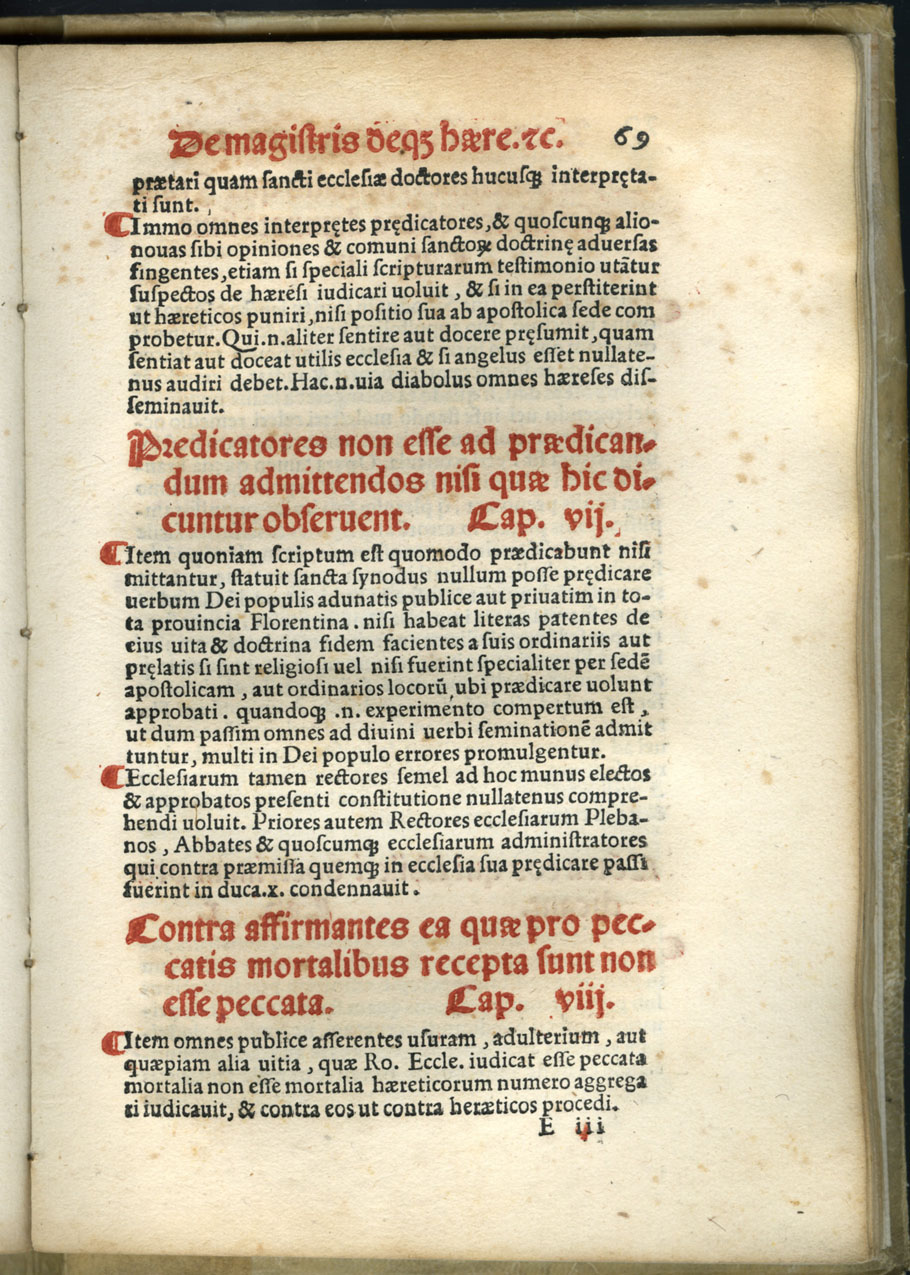 De magiſtris deq́ꝫ hære.⁊c. 69
prætari quam ſancti eccleſiæ doctores hucuſqꝫ interpręta-
ti ſunt.
¶Immo omnes interprętes prędicatores,& quoſcunqꝫ alio-
nouas ſibi opiniones & comuni ſanctoꝝ doctrinę aduerſas
fingentes,etiam ſi ſpeciali ſcripturarum teſtimonio utātur
ſuſpectos de hæreſi iudicari uoluit, & ſi in ea perſtiterint
ut hæreticos puniri,niſi poſitio ſua ab apoſtolica ſede com
probetur.Qui.n.aliter ſentire aut docere pręſumit,quam
ſentiat aut doceat utilis eccleſia & ſi angelus eſſet nullate-
nus audiri debet.Hac.n.uia diabolus omnes hæreſes diſ-
ſeminauit.
Predicatores non eſſe ad prædican-
dum admittendos niſi quæ hic di-
cuntur obſeruent. Cap. vij.
¶Item quoniam ſcriptum eſt quomodo prædicabunt niſi
mittantur, ſtatuit ſancta ſynodus nullum poſſe prędicare
uerbum Dei populis adunatis publice aut priuatim in to-
ta prouincia Florentina . niſi habeat literas patentes de
eius uita & doctrina fidem facientes a ſuis ordinariis aut
pręlatis ſi ſint religioſi uel niſi fuerint ſpecialiter per ſedē
apoſtolicam , aut ordinarios locorū ubi prædicare uolunt
approbati . quandoqꝫ .n. experimento compertum eſt ,
ut dum paſſim omnes ad diuini uerbi ſeminationē admit
tuntur, multi in Dei populo errores promulgentur.
¶Eccleſiarum tamen rectores ſemel ad hoc munus electos
& approbatos preſenti conſtitutione nullatenus compre-
hendi uoluit. Priores autem Rectores eccleſiarum Pleba-
nos , Abbates & quoſcumqꝫ eccleſiarum adminiſtratores
qui contra præmiſſa quemqꝫ in eccleſia ſua prędicare paſſi
fuerint in duca.x. condennauit .
Contra affirmantes ea quæ pro pec-
catis mortalibus recepta ſunt non
eſſe peccata. Cap. viij.
¶Item omnes publice aſſerentes uſuram , adulterium , aut
quæpiam alia uitia , quæ Ro. Eccle. iudicat eſſe peccata
mortalia non eſſe mortalia hæreticorum numero aggrega
ti iudicauit, & contra eos ut contra heræticos procedi.
E iii